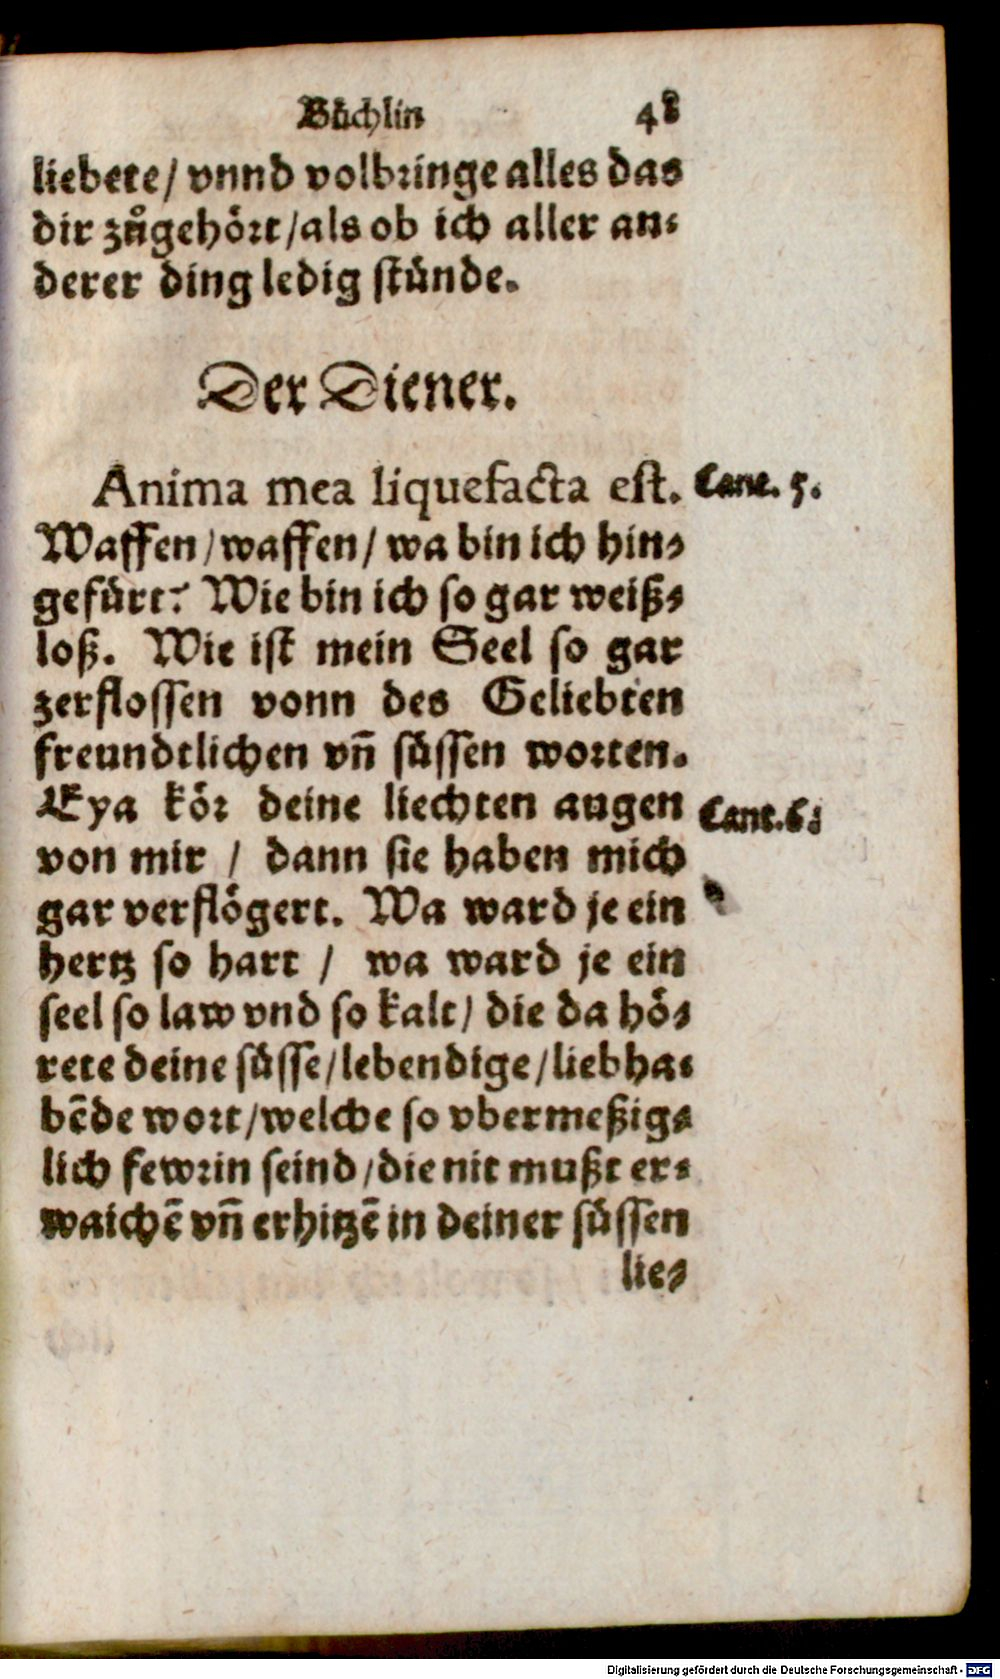 Bůchlin 48
liebete/ vnnd volbringe alles das
dir zůgehört/als ob ich aller an⸗
derer ding ledig stünde.
Der Diener.
Anima mea liquefacta est. Cant. 5.
Waffen/waffen/ wa bin ich hin⸗
gefürt? Wie bin ich so gar weiß⸗
loß. Wie ist mein Seel so gar
zerflossen vonn des Geliebten
freundtlichen vñ süssen worten.
Eya kör deine liechten augen Cant. 6.
von mir / dann sie haben mich
gar verflögert. Wa ward je ein
hertz so hart / wa ward je ein
seel so law vnd so kalt/ die da hö⸗
rete deine süsse/lebendige/liebha⸗
bẽde wort/welche so vbermeßig⸗
lich fewrin seind/die nit mußt er⸗
waichẽ vñ erhitzẽ in deiner süssen
lie⸗
Digitalisierung gefördert durch die Deutsche Forschungsgemeinschaft - DFG